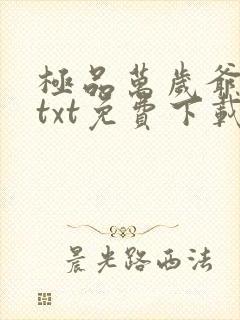 極品萬歲爺
txt免費下載
晨光路西法